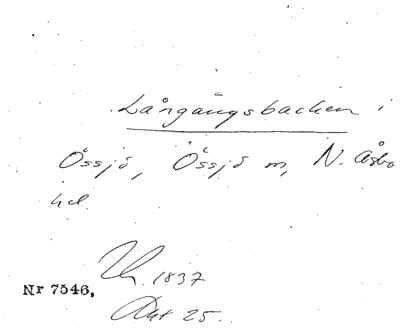 Långängsbacken i
Össjö, Össjö sn, N. Åsbo
hd.
1837
Nr 7546.
Akt 25.